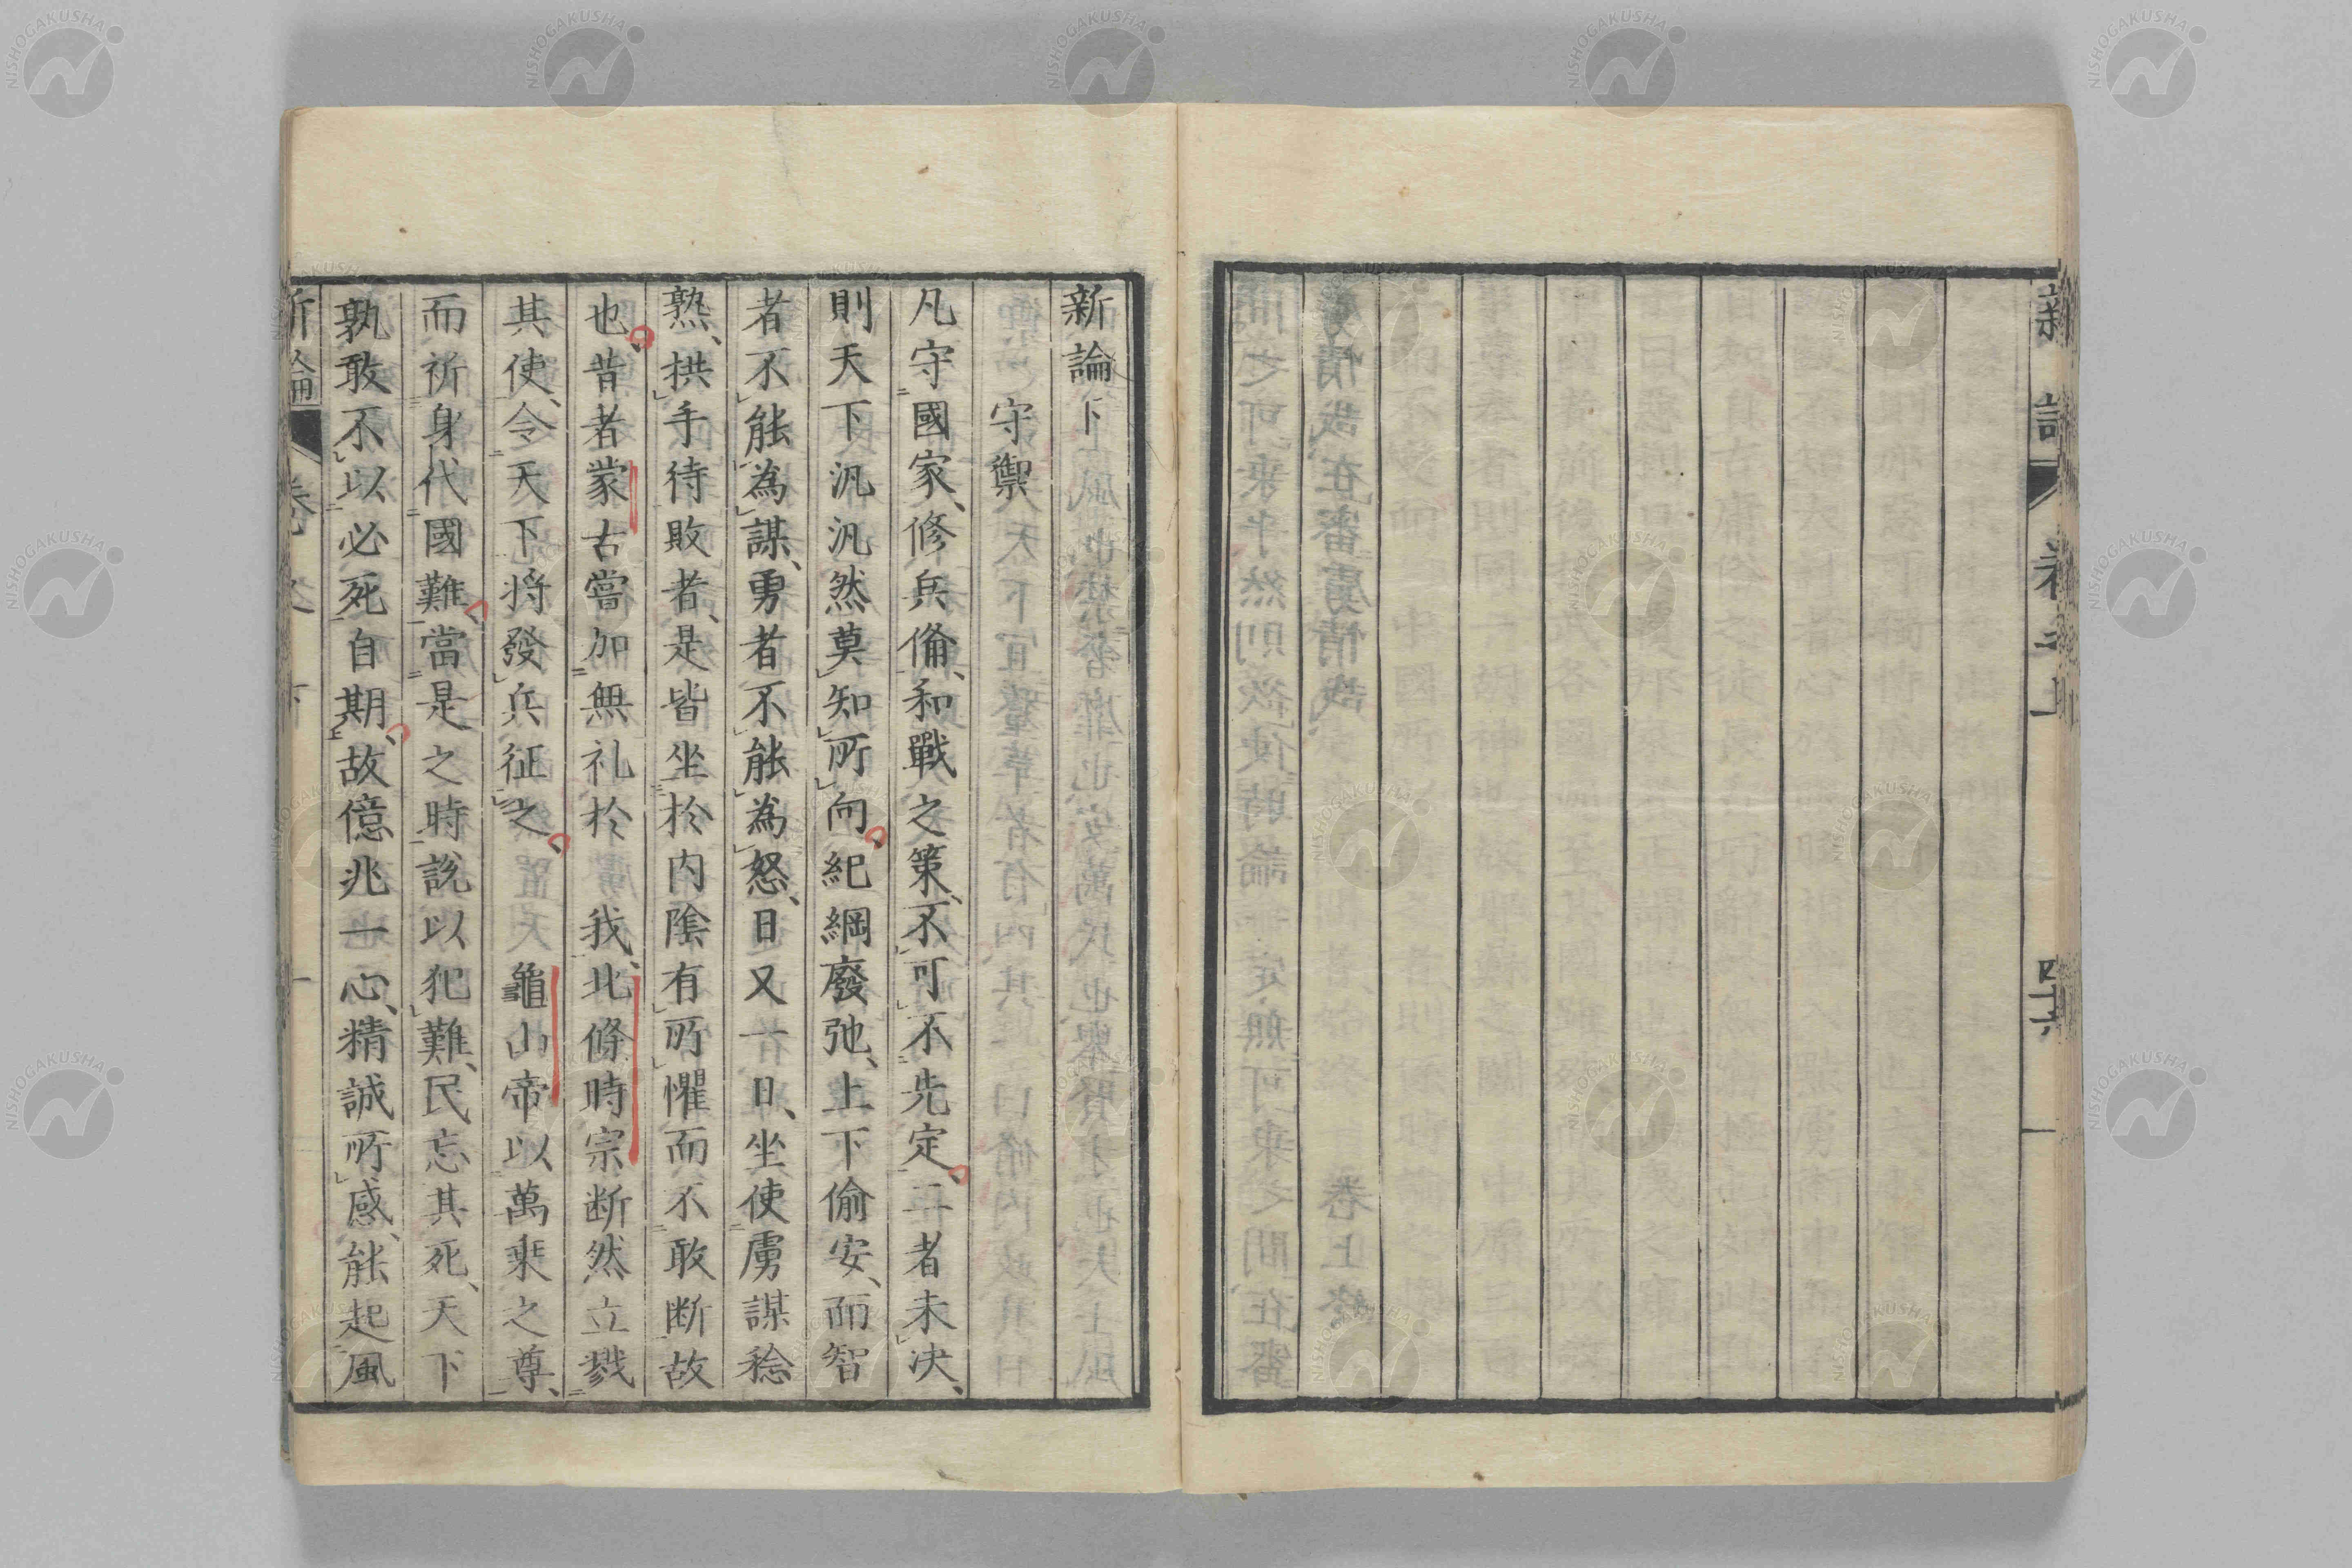 新論下
守禦
凡守國家、修兵備、和戰之策、不可不先定。二者未决、
則天下汎汎然莫知所向。紀綱廢弛、上下偷安、而智
者不能為謀、勇者不能為怒、日又一日、坐使虜謀稔
熟、拱手待敗者、是皆坐於内陰有所懼而不敢断故
也。昔者蒙古嘗加無礼於我、北條時宗断然立戮
其使、令天下将發兵征之。龜山帝以萬乗之尊、
而祈身代國難。當是之時說以犯難、民忘其死、天下
孰敢不以必死自期。故億兆一心、精誠所感、能起風
新論 卷之下 一
新論 卷之上 四十六
NISHOGAKUSHA